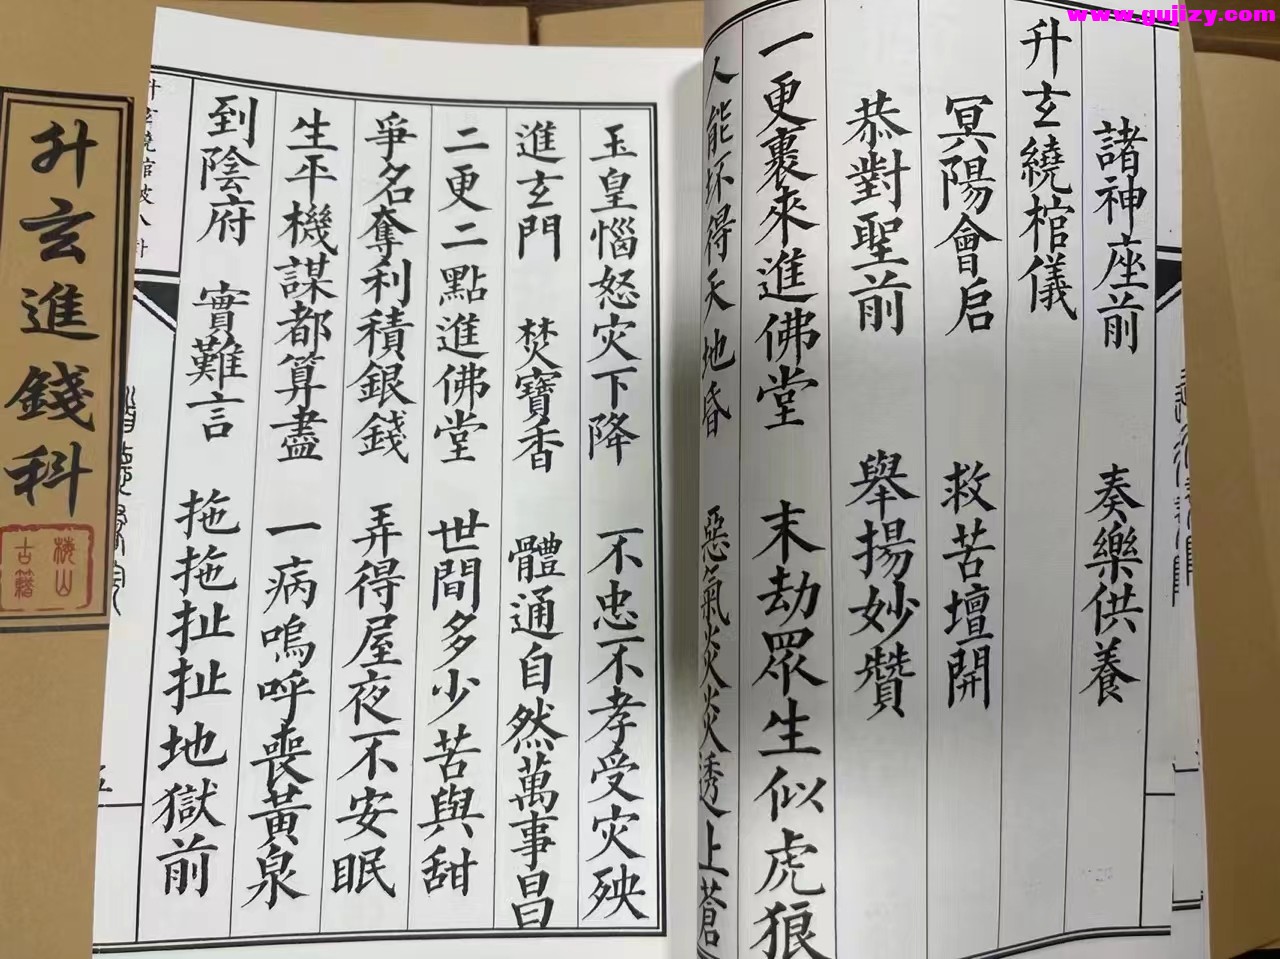 www.gujizy.com
諸神座前 奏樂供養
升玄繞棺儀
冥陽會启 救苦壇開
恭對聖前 舉揚妙讚
一更裏來進佛堂 末劫眾生似虎狼
人能坏得天地昏 惡氣炎炎透上蒼
玉皇惱怒灾下降 不忠不孝受灾殃
進玄門 焚寶香 體通自然萬事昌
二更二點進佛堂 世間多少苦與甜
爭名奪利積銀錢 弄得屋夜不安眠
生平機謀都算盡 一病嗚呼喪黃泉
到陰府 實難言 拖拖扯扯地獄前
升玄進錢科
梅山古籍